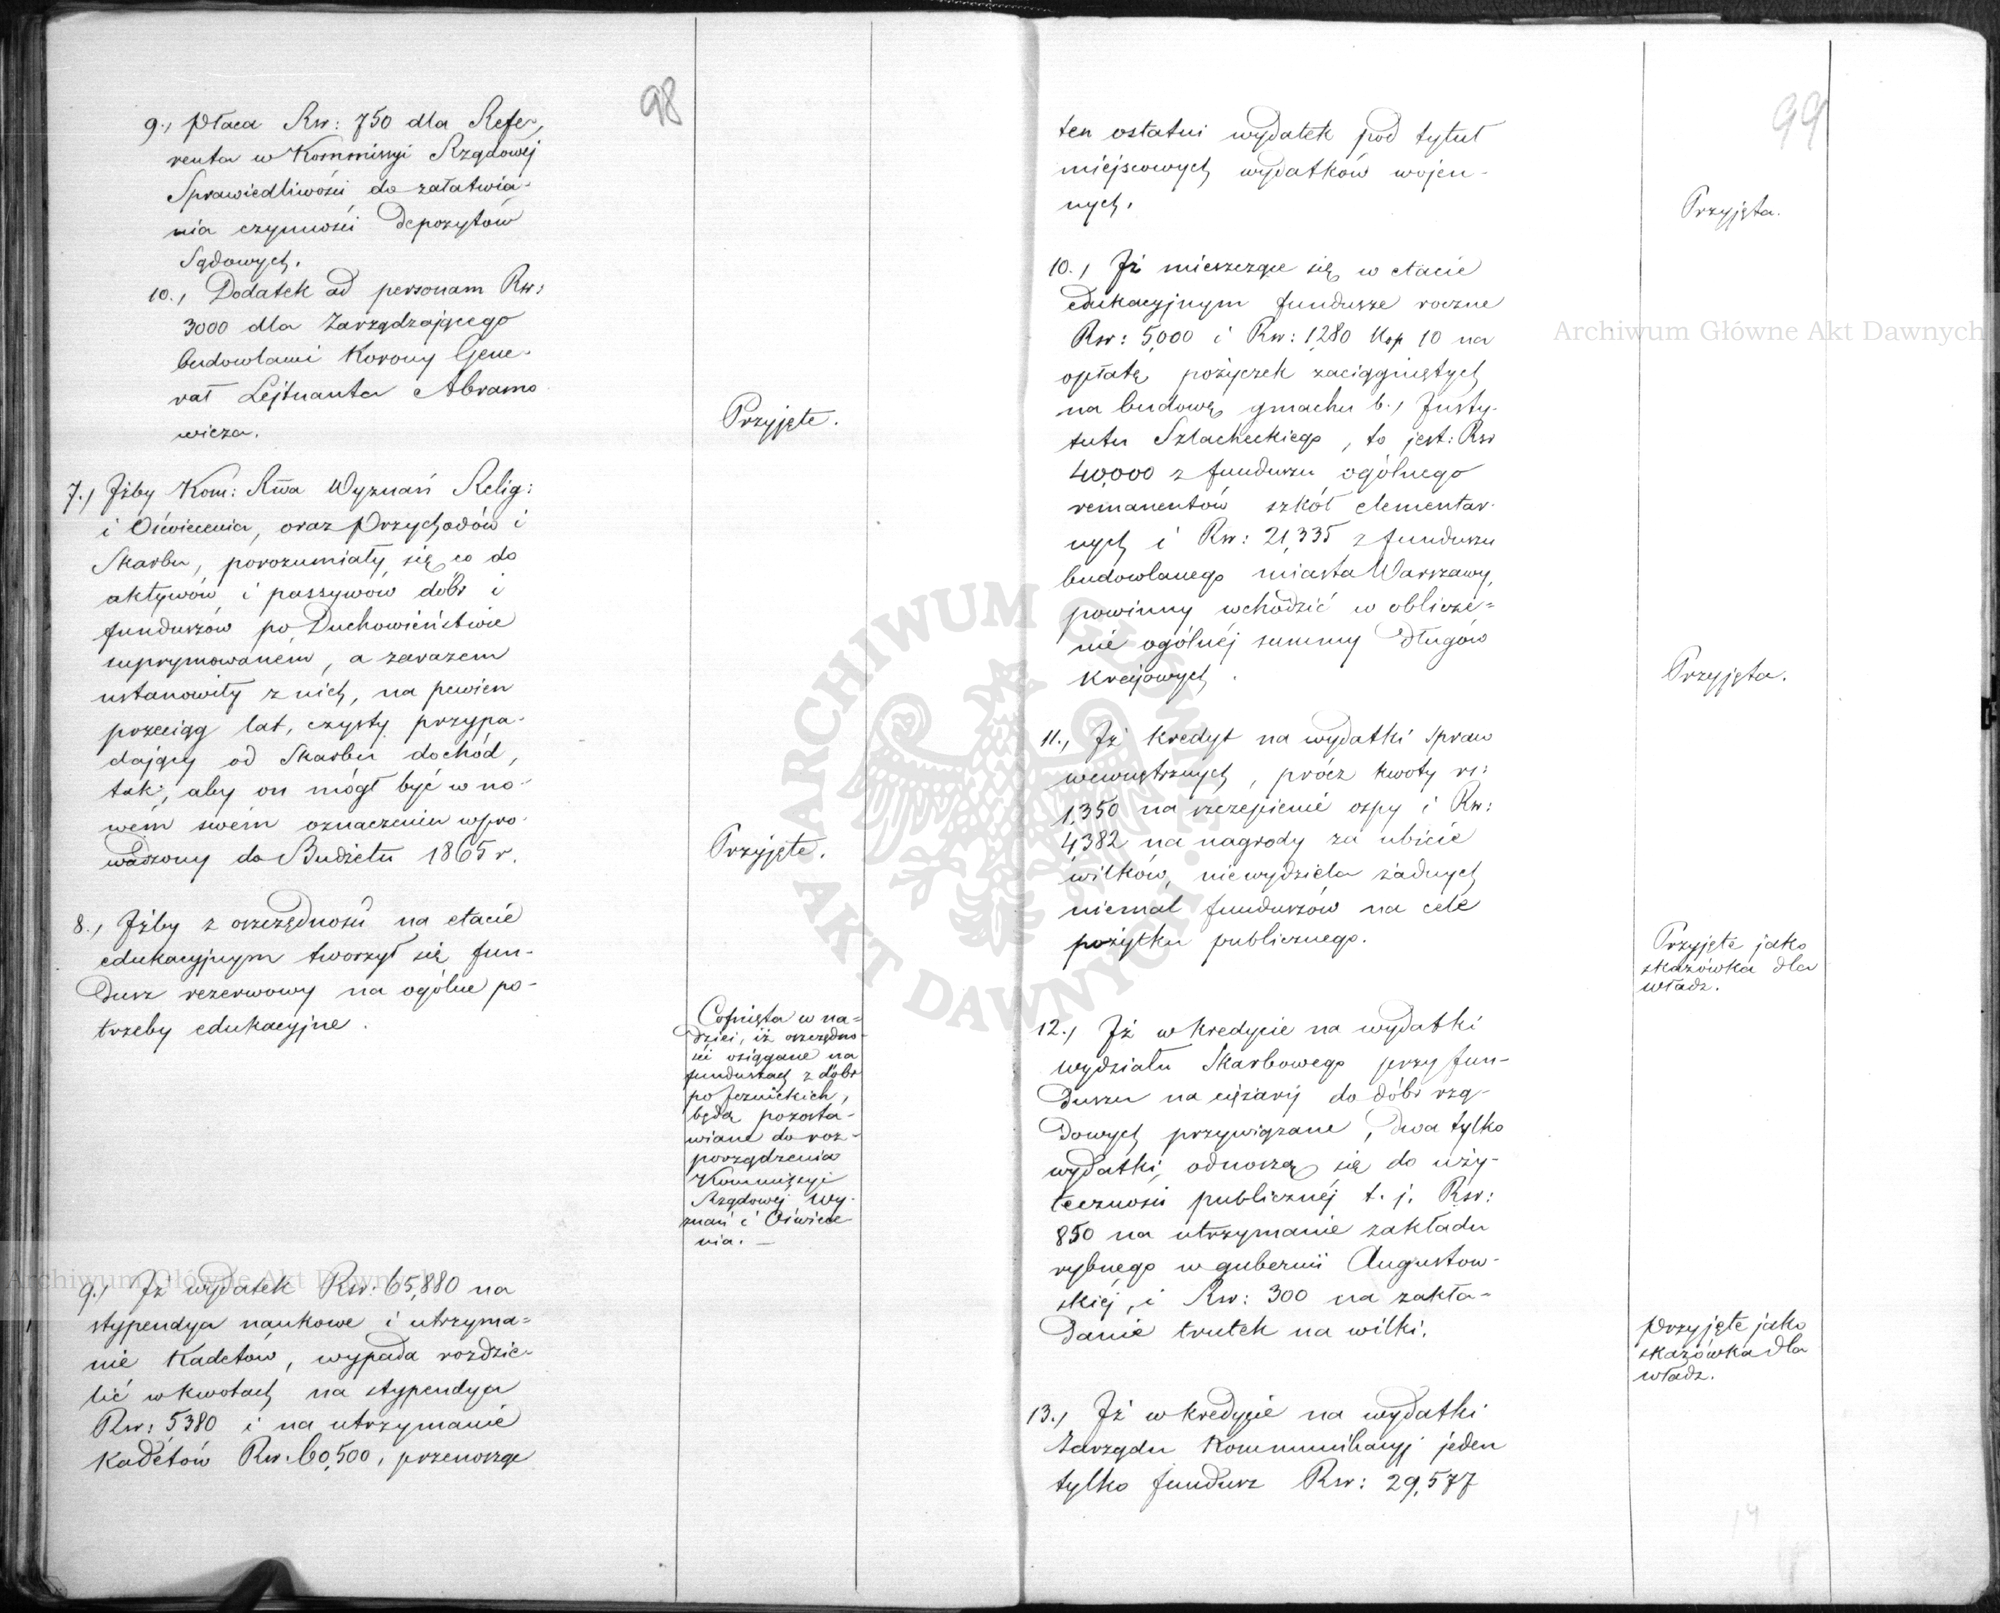 98
9., Płaca Rsr: 750 dla Refe,
renta w Kommissyi Rządowéj
Sprawiedliwości do załatwia-
nia czynności Depozytów
Sądowych.
10., Dodatek ad personam Rsr:
3000 dla Zarządzającego
budowlami Korony Gene-
rał Lejtnanta Abramo
wicza.
Przyjęte.
7., Iżby Kom: Rwa Wyznań Relig:
i Oświecenia, oraz Przychodów i
Skarbu, porozumiały się co do
aktywów i passywów dóbr i
funduszów po Duchowieństwie
suprymowaném, a zarazem
ustanowiły z nich, na pewien
przeciąg lat, czysty przypa-
dający od Skarbu dochód,
tak, aby on mógł być w no-
wém swém oznaczeniu wpro-
wadzony do Budżetu 1865 r.
Przyjęte.
8., Iżby z oszczędności na etacie
edukacyjnym tworzył się fun-
dusz rezerwowy na ogólne po-
trzeby edukacyjne.
Cofnięta w na=
dziei, iż oszczędno-
ści osiągane na
funduszach z dóbr
po Jezuickich,
będą pozosta-
wiane do roz-
porządzenia
Kommissyi
Rządowéj Wy-
znań i Oświece
nia. —
9., Iż wydatek Rsr: 65,880 na
stypendya naukowe i utrzyma=
nie Kadetów, wypada rozdzie-
lić w kwotach na stypendya
Rsr: 5380 i na utrzymanie
kadetów Rsr: 60,500, przenosząc
99
ten ostatni wydatek pod tytuł
miejscowych wydatków wojen-
nych.
Przyjęta.
10., Iż mieszczące się w etacie
edukacyjnym fundusze roczne
Rsr: 5,000 i Rsr: 1,280 Kop 10 na
opłatę pożyczek zaciągniętych
na budowę gmachu b., Insty-
tutu Szlacheckiego, to jest: Rsr
40,000 z funduszu ogólnego
remanentów szkół elementar-
nych i Rsr: 21,335 z funduszu
budowlanego miasta Warszawy,
powinny wchodzić w oblicze=
nie ogólnéj summy długów
krajowych.
Przyjęta.
11., Iż kredyt na wydatki spraw
wewnętrznych, prócz kwoty rs:
1,350 na szczepienie ospy i Rsr:
4,382 na nagrody za ubicie
wilków, niewydziela żadnych
niemal funduszów na cele
pożytku publicznego.
Przyjęte jako
skazówka dla
władz.
12., Iż w kredycie na wydatki
wydziału Skarbowego przy fun-
duszu na ciężary do dóbr rzą-
dowych przywiązane, dwa tylko
wydatki, odnoszą się do uży-
teczności publicznéj t. j. Rsr:
850 na utrzymanie zakładu
rybnego w gubernii Augustow-
skiéj, i Rsr: 300 na zakła-
danie trutek na wilki.
Przyjęte jako
skazówka dla
władz.
13., Iż w kredycie na wydatki
Zarządu Kommunikacyj jeden
tylko fundusz Rsr: 29,577
14
Archiwum Główne Akt Dawnych
Archiwum Główne Akt Dawnych
ARCHIWUM GŁÓWNE AKT DAWNYCH